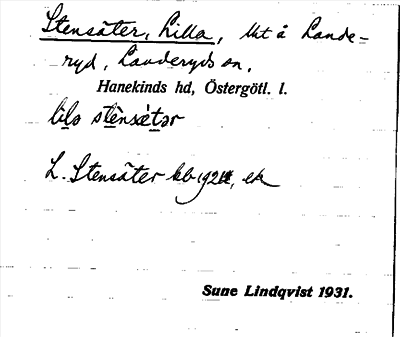 Stensäter, Lilla, lht å Lande-
ryd, Landeryds sn,
Hanekinds hd, Östergötl. l.
lila stènsǽtər
L. Stensäter kb, ek
Sune Lindqvist 1931.